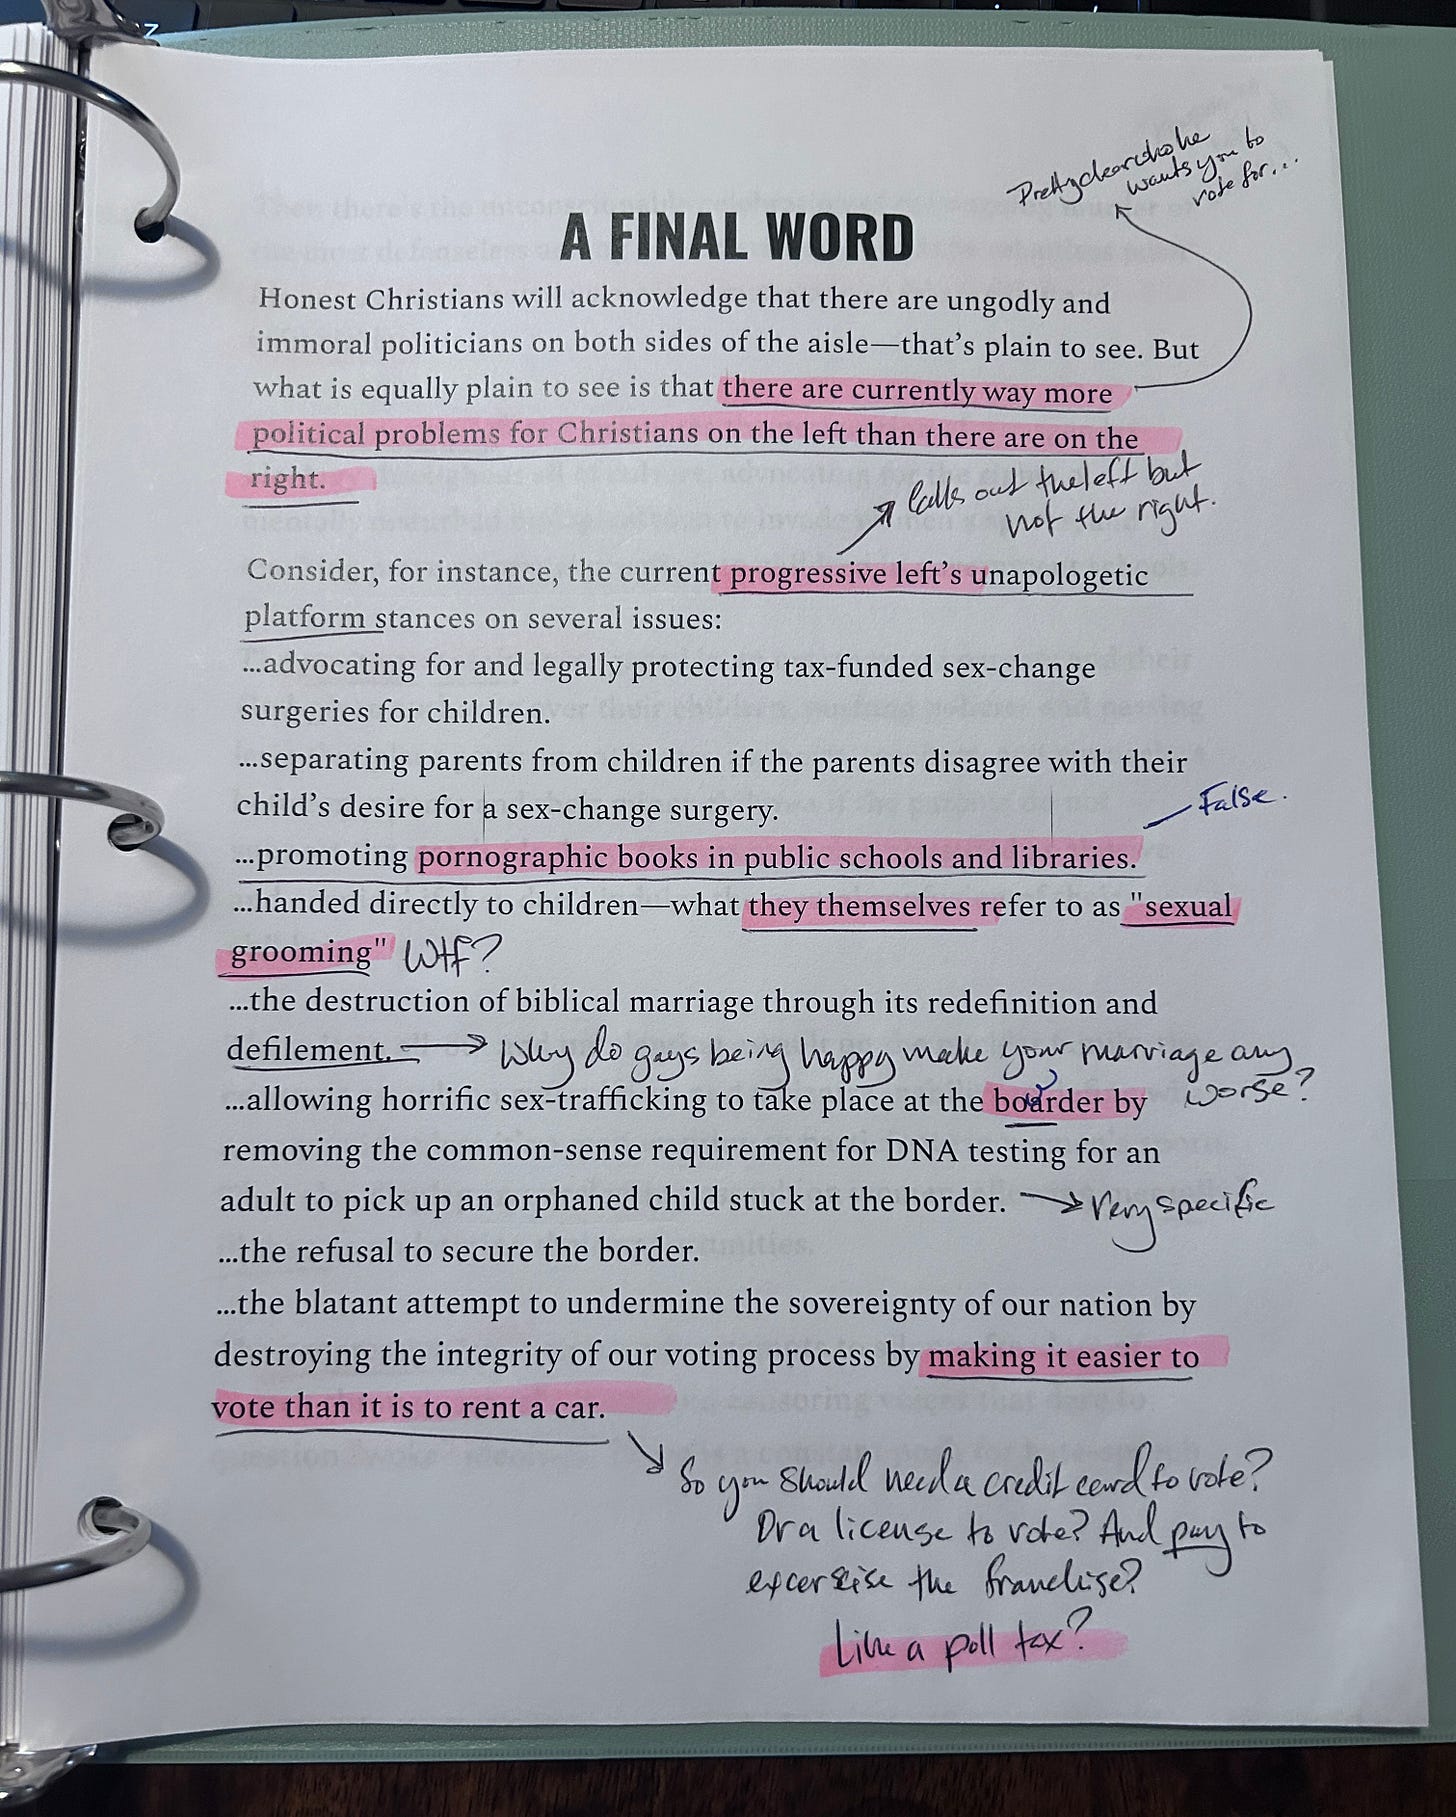 Pretty clear who he
wants you to
vote for...
A FINAL WORD
Honest Christians will acknowledge that there are ungodly and
immoral politicians on both sides of the aisle—that's plain to see. But
what is equally plain to see is that there are currently way more
political problems for Christians on the left than there are on the
right.
Calls out the left but
not the right.
Consider, for instance, the current progressive left's unapologetic
platform stances on several issues:
...advocating for and legally protecting tax-funded sex-change
surgeries for children.
...separating parents from children if the parents disagree with their
child's desire for a sex-change surgery.
False.
...promoting pornographic books in public schools and libraries.
...handed directly to children—what they themselves refer to as "sexual
grooming" Wtf?
...the destruction of biblical marriage through its redefinition and
defilement. Why do gays being happy make your marriage any
worse?
...allowing horrific sex-trafficking to take place at the boarder by
removing the common-sense requirement for DNA testing for an
adult to pick up an orphaned child stuck at the border. Very specific
...the refusal to secure the border.
...the blatant attempt to undermine the sovereignty of our nation by
destroying the integrity of our voting process by making it easier to
vote than it is to rent a car.
So you should need a credit card to vote?
Or a license to vote? And pay to
excersise the franchise?
Like a poll tax?